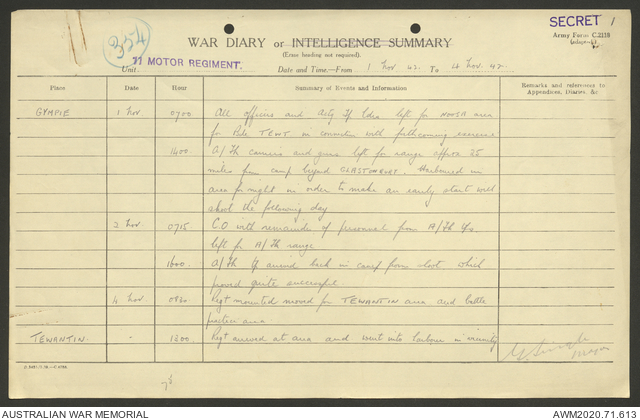 SECRET 1
354
WAR DIARY or INTELLIGENCE SUMMARY
Army Form C.2118
(Erase heading not required).
Unit 11 MOTOR REGIMENT.
Date and Time.—From 1 Nov 42. To 4 Nov. 42.
Place Date Hour Summary of Events and Information Remarks and references to
Appendices, Diaries, &c
GYMPIE 1 Nov 0700 All officers and Actg Tp Ldrs left for NOOSA area
for Bde TEWT in connection with forthcoming exercise
1400 A/Tk carriers and guns left for range approx 25
miles from camp beyond GLASTONBURY. Harboured in
area for night in order to make an early start with
shoot the following day
2 Nov 0715 C.O with remainder of personnel from A/Tk
left for A/Tk range
1600 A/Tk arrived back in camp from shoot which
proved quite successful.
4 Nov. 0830 Regt mounted moved for TEWANTIN area and battle
practice area
TEWANTIN. " 1200 Regt arrived at area and went into harbour in vicinity
Major
AUSTRALIAN WAR MEMORIAL AWM2020.71.613